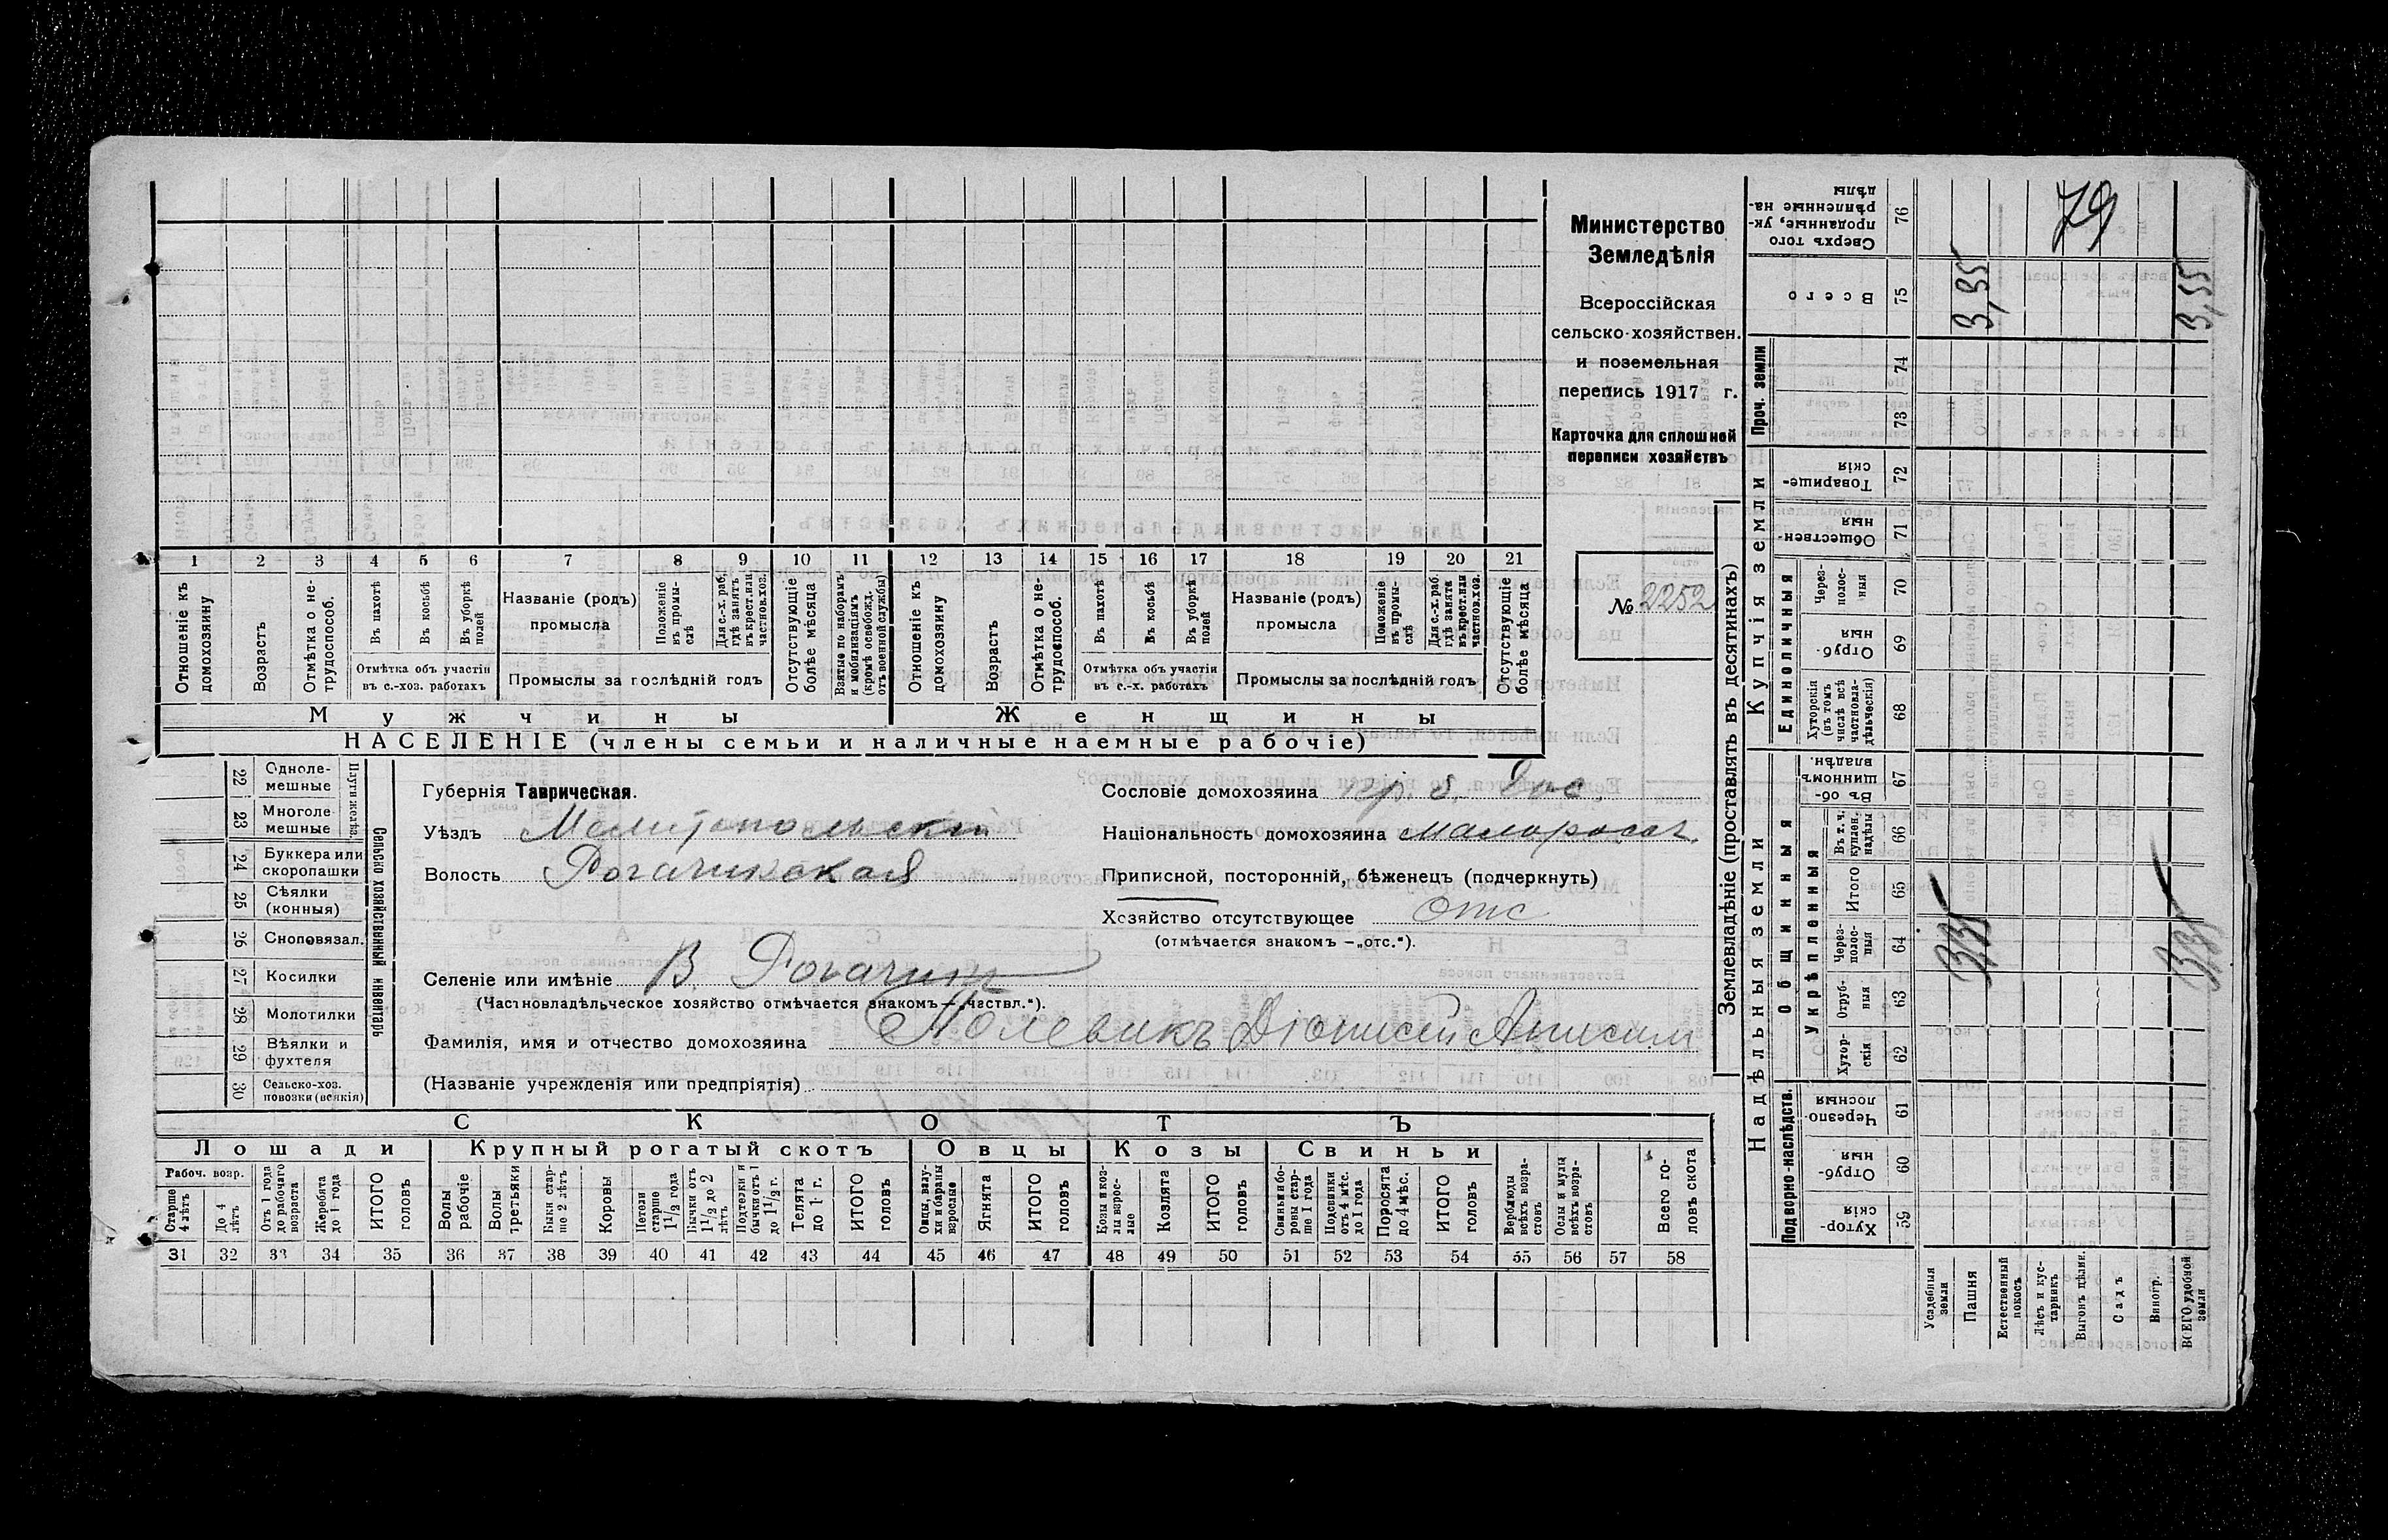 Министерство
Земледѣлія
Всероссійская
сельско-хозяйствен.
и поземельная
перепись 1917 г.
Карточка для сплошной
переписи хозяйствъ
№ 2252
1 2 3 4 5 6 7 8 9 10 11 12 13 14 15 16 17 18 19 20 21
Отношеніе къ домохозяину
Возрастъ
Отмѣтка о не-трудоспособ.
Въ пахотѣ
Въ косьбѣ
Въ уборкѣ полей
Отмѣтка объ участіи
въ с.-хоз. работахъ
Названіе (родъ)
промысла
Положеніе въ промы-слѣ
Для с.-х. раб. гдѣ занятъ въ крест. или частнов. хоз.
Промыслы за послѣдній годъ
Отсутствующіе болѣе мѣсяца
Взятые по наборамъ и мобилизаціямъ (кромѣ освобожд. отъ военной службы)
Отношеніе къ домохозяину
Возрастъ
Отмѣтка о не-трудоспособ.
Въ пахотѣ
Въ косьбѣ
Въ уборкѣ полей
Отмѣтка объ участіи
въ с.-х. работахъ
Названіе (родъ)
промысла
Положеніе въ промы-слѣ
Для с.-х. раб. гдѣ занята въ крест. или частнов. хоз.
Промыслы за послѣдній годъ
Отсутствующіе болѣе мѣсяца
Мужчины
Женщины
НАСЕЛЕНІЕ (члены семьи и наличные наемные рабочіе)
Сельско хозяйственный инвентарь
Плуги желѣз.
22 Однолемешные
23 Многолемешные
24 Буккера или скоропашки
25 Сѣялки (конныя)
26 Сноповязал.
27 Косилки
28 Молотилки
29 Вѣялки и фухтеля
30 Сельско-хоз. повозки (всякія)
Губернія Таврическая.
Уѣздъ Мелитопольскій
Волость Рогачикская
Сословіе домохозяина кр. б.
Національность домохозяина малороссъ
Приписной, посторонній, бѣженецъ (подчеркнуть)
Хозяйство отсутствующее отс
(отмѣчается знакомъ —„отс.“).
Селеніе или имѣніе В. Рогачикъ
(Частновладѣльческое хозяйство отмѣчается знакомъ—„частвл.“).
Фамилія, имя и отчество домохозяина Полевикъ Діонисій Анисим
(Названіе учрежденія или предпріятія)
СКОТЪ
Лошади
Крупный рогатый скотъ
Овцы
Козы
Свиньи
Рабоч. возр.
Старше 4 лѣтъ
До 4 лѣтъ
Отъ 1 года до рабочаго возраста
Жеребята до 1 года
ИТОГО головъ
Волы рабочіе
Волы третьяки
Быки стар-ше 2 лѣтъ
Коровы
Нетели старше 1 1/2 года
Бычки отъ 1 1/2 до 2 лѣтъ
Подтелки и бычки отъ 1 до 1 1/2 г.
Телята до 1 г.
ИТОГО головъ
Овцы, валу-хи и бараны взрослые
Ягнята
ИТОГО головъ
Козы и коз-лы взрос-лые
Козлята
ИТОГО головъ
Свиньи и бо-ровы стар-ше 1 года
Подсвинки отъ 4 мѣс. до 1 года
Поросята до 4 мѣс.
ИТОГО головъ
Вербл­юды всѣхъ возра-стовъ
Ослы и мулы всѣхъ возра-стовъ
Всего го-ловъ скота
31 32 33 34 35 36 37 38 39 40 41 42 43 44 45 46 47 48 49 50 51 52 53 54 55 56 57 58
Землевладѣніе (проставлять въ десятинахъ)
Надѣльныя земли
Купчія земли
Проч. земли
Подворно-наслѣдств.
Общинныя
Укрѣпленныя
Единоличныя
Сверхъ того проданные, ук-рѣпленные на-дѣлы 76
Всего 75
74
73
Товарище-скія 72
Обществен-ныя 71
Через-полос-ныя 70
Отруб-ныя 69
Хуторскія (въ томъ числѣ всѣ частновла-дѣльческія) 68
Въ об-щинномъ владѣн. 67
Въ т. ч. куплен. надѣлы 66
Итого 65
Через-полос-ныя 64
Отруб-ныя 63
Хутор-скія 62
Черезпо-лосныя 61
Отруб-ныя 60
Хутор-скія 59
Усадебныя земли
Пашня
Естественный покосъ
Лѣсъ и кус-тарникъ
Выгонъ цѣлин.
Садъ
Виногр.
ВСЕГО удобной земли
79
3,35
3,35